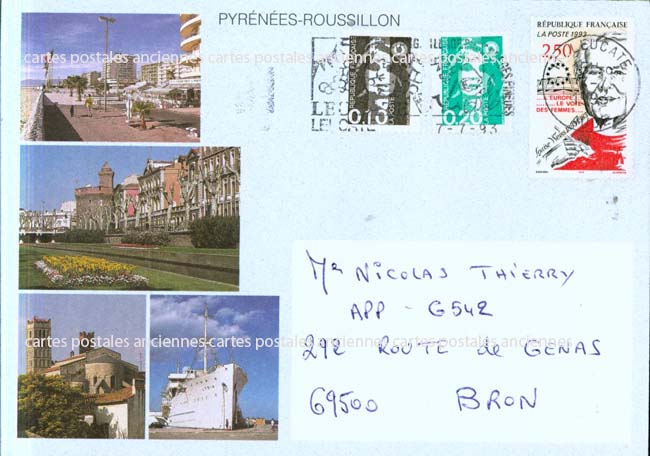 PYRÉNÉES-ROUSSILLON
RÉPUBLIQUE FRANÇAISE
LA POSTE 1993
2,50
L'EUROPE
LE VOTE
DES FEMMES...
0,10
0,20
LEUCATE
7-7-93
cartes postales anciennes
cartes postales anciennes
cartes postales anciennes
cartes postales anciennes
cartes postales anciennes
cartes postales anciennes
Mr NICOLAS THIERRY
APP - G542
292 ROUTE de GENAS
69500 BRON